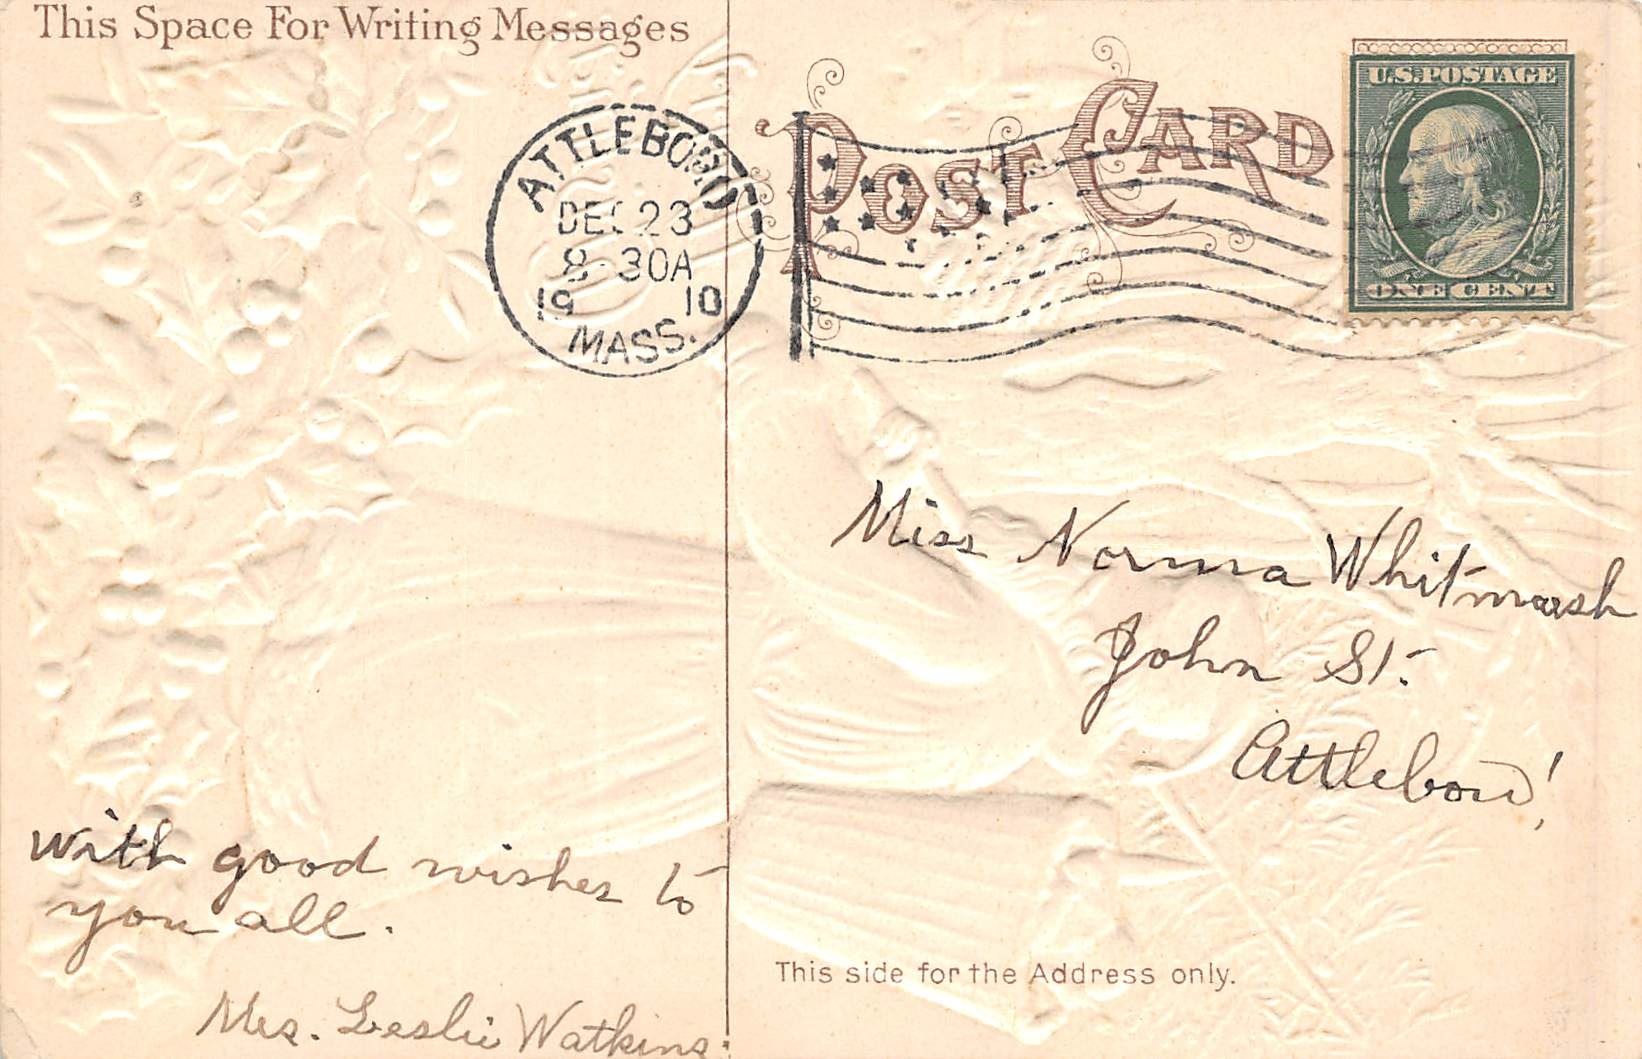 This Space For Writing Messages
POST CARD
U.S. POSTAGE
ONE CENT
ATTLEBORO
DEC 23
8-30A
1910
MASS.
Miss Norma Whitmarsh
John St.
Attleboro!
with good wishes to
you all.
Mrs. Leslie Watkins.
This side for the Address only.